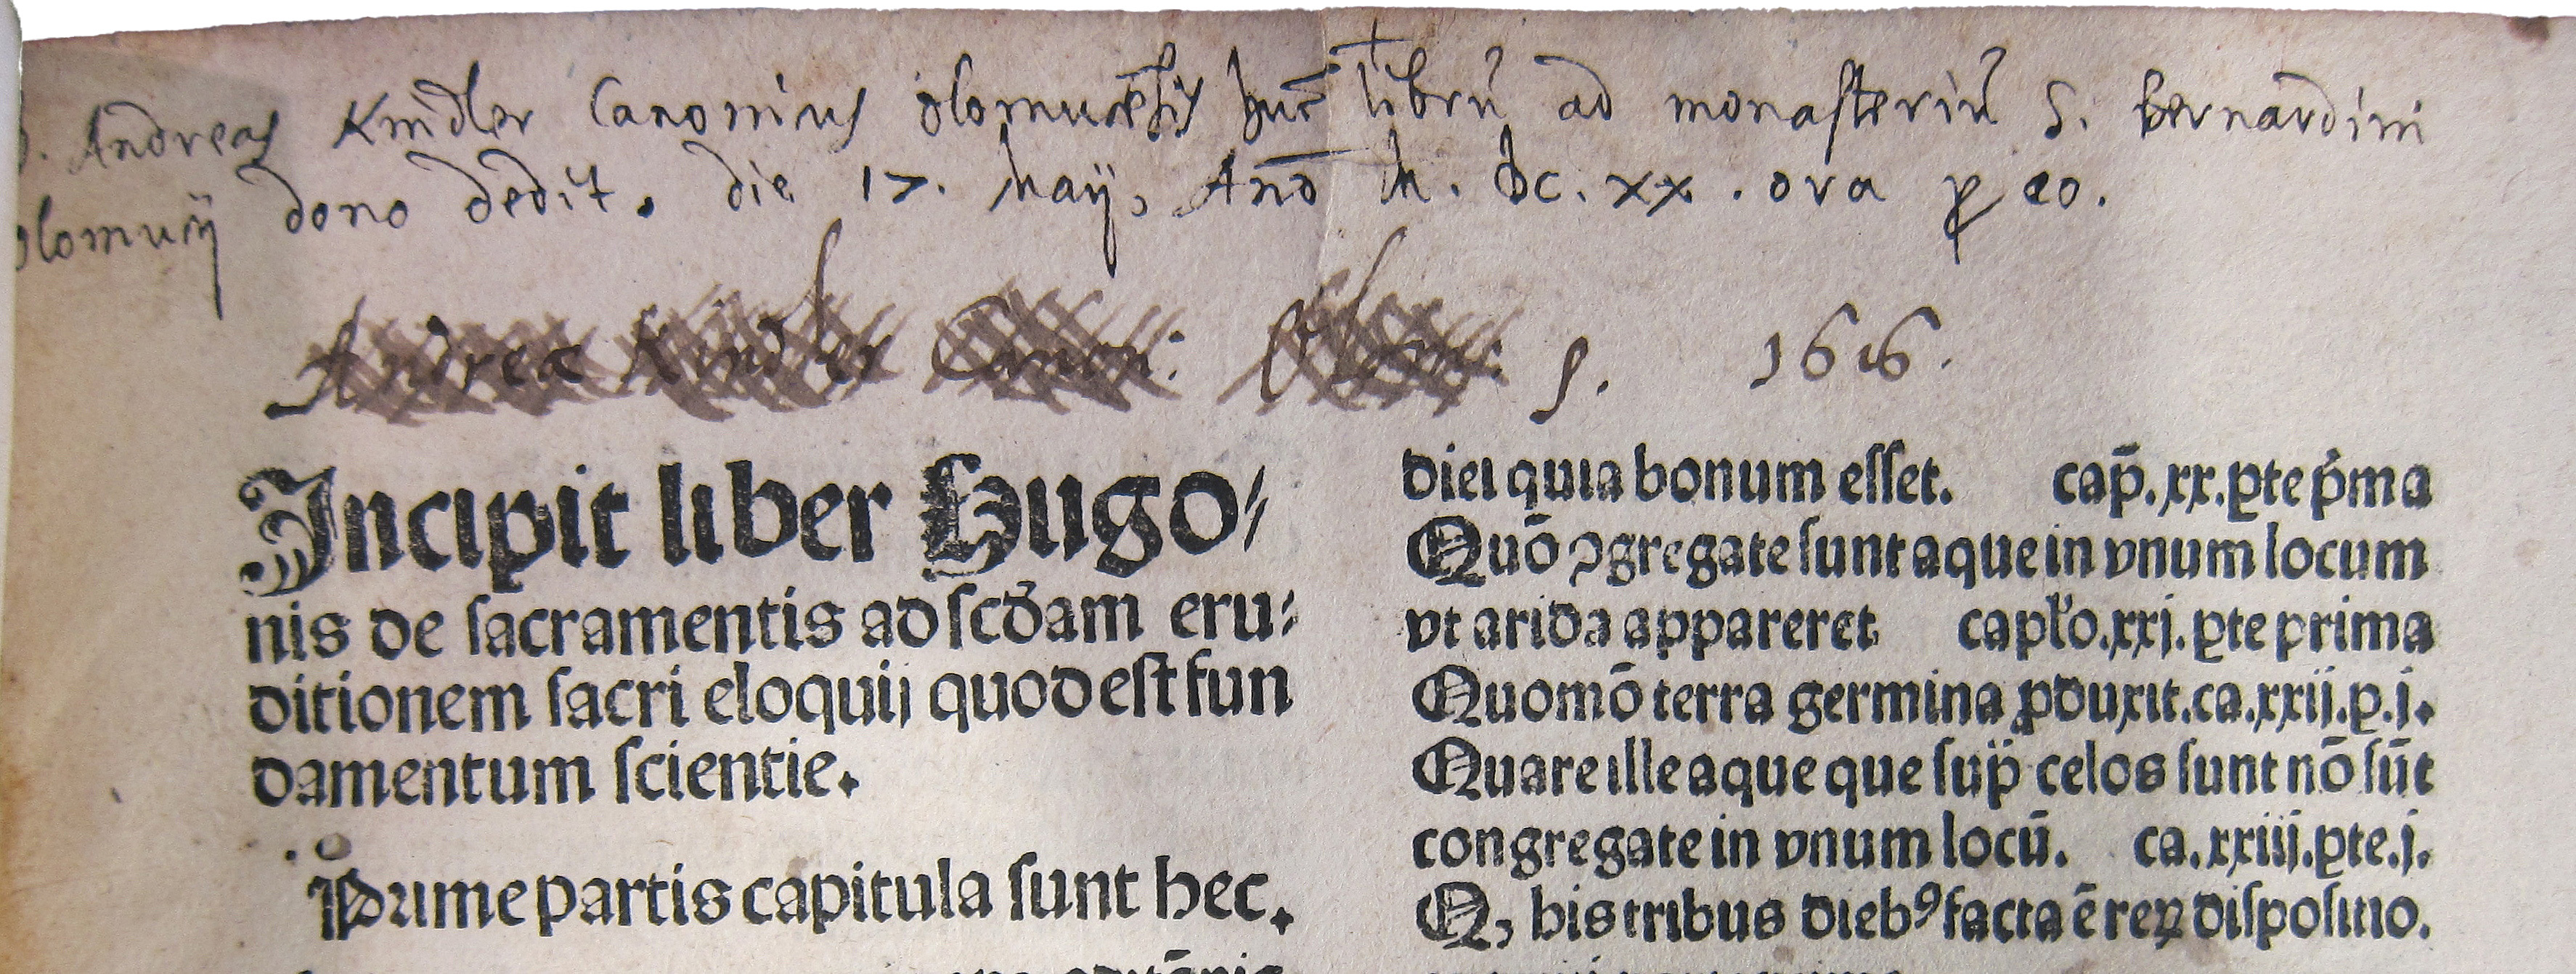 D. Andreas Kindler Canonicus Olomucēsis hūc librū ad monasteriū S. Bernardini
Olomucij dono dedit. die 17. Maij, Anō M. DC. XX. ora ꝓ eo.
Andreæ Kindler Canon: Olom: s. 1616.
Incipit liber Hugo⸗
nis de sacramentis ad scḋam eru⸗
ditionem sacri eloquij quod est fun
damentum scientie.
Prime partis capitula sunt hec.
diei quia bonum esset. cap̄. xx. ꝑte p̍ma
Quō ꝯgregate sunt aque in vnum locum
vt arida appareret capl̓o. xxj. ꝑte prima
Quomō terra germina ꝓduxit. ca. xxij. p. j.
Quare ille aque que sup̄ celos sunt nō sūt
congregate in vnum locū. ca. xxiij. ꝑte. j.
Q, his tribus dieb⁹ facta ē reꝝ dispositio.